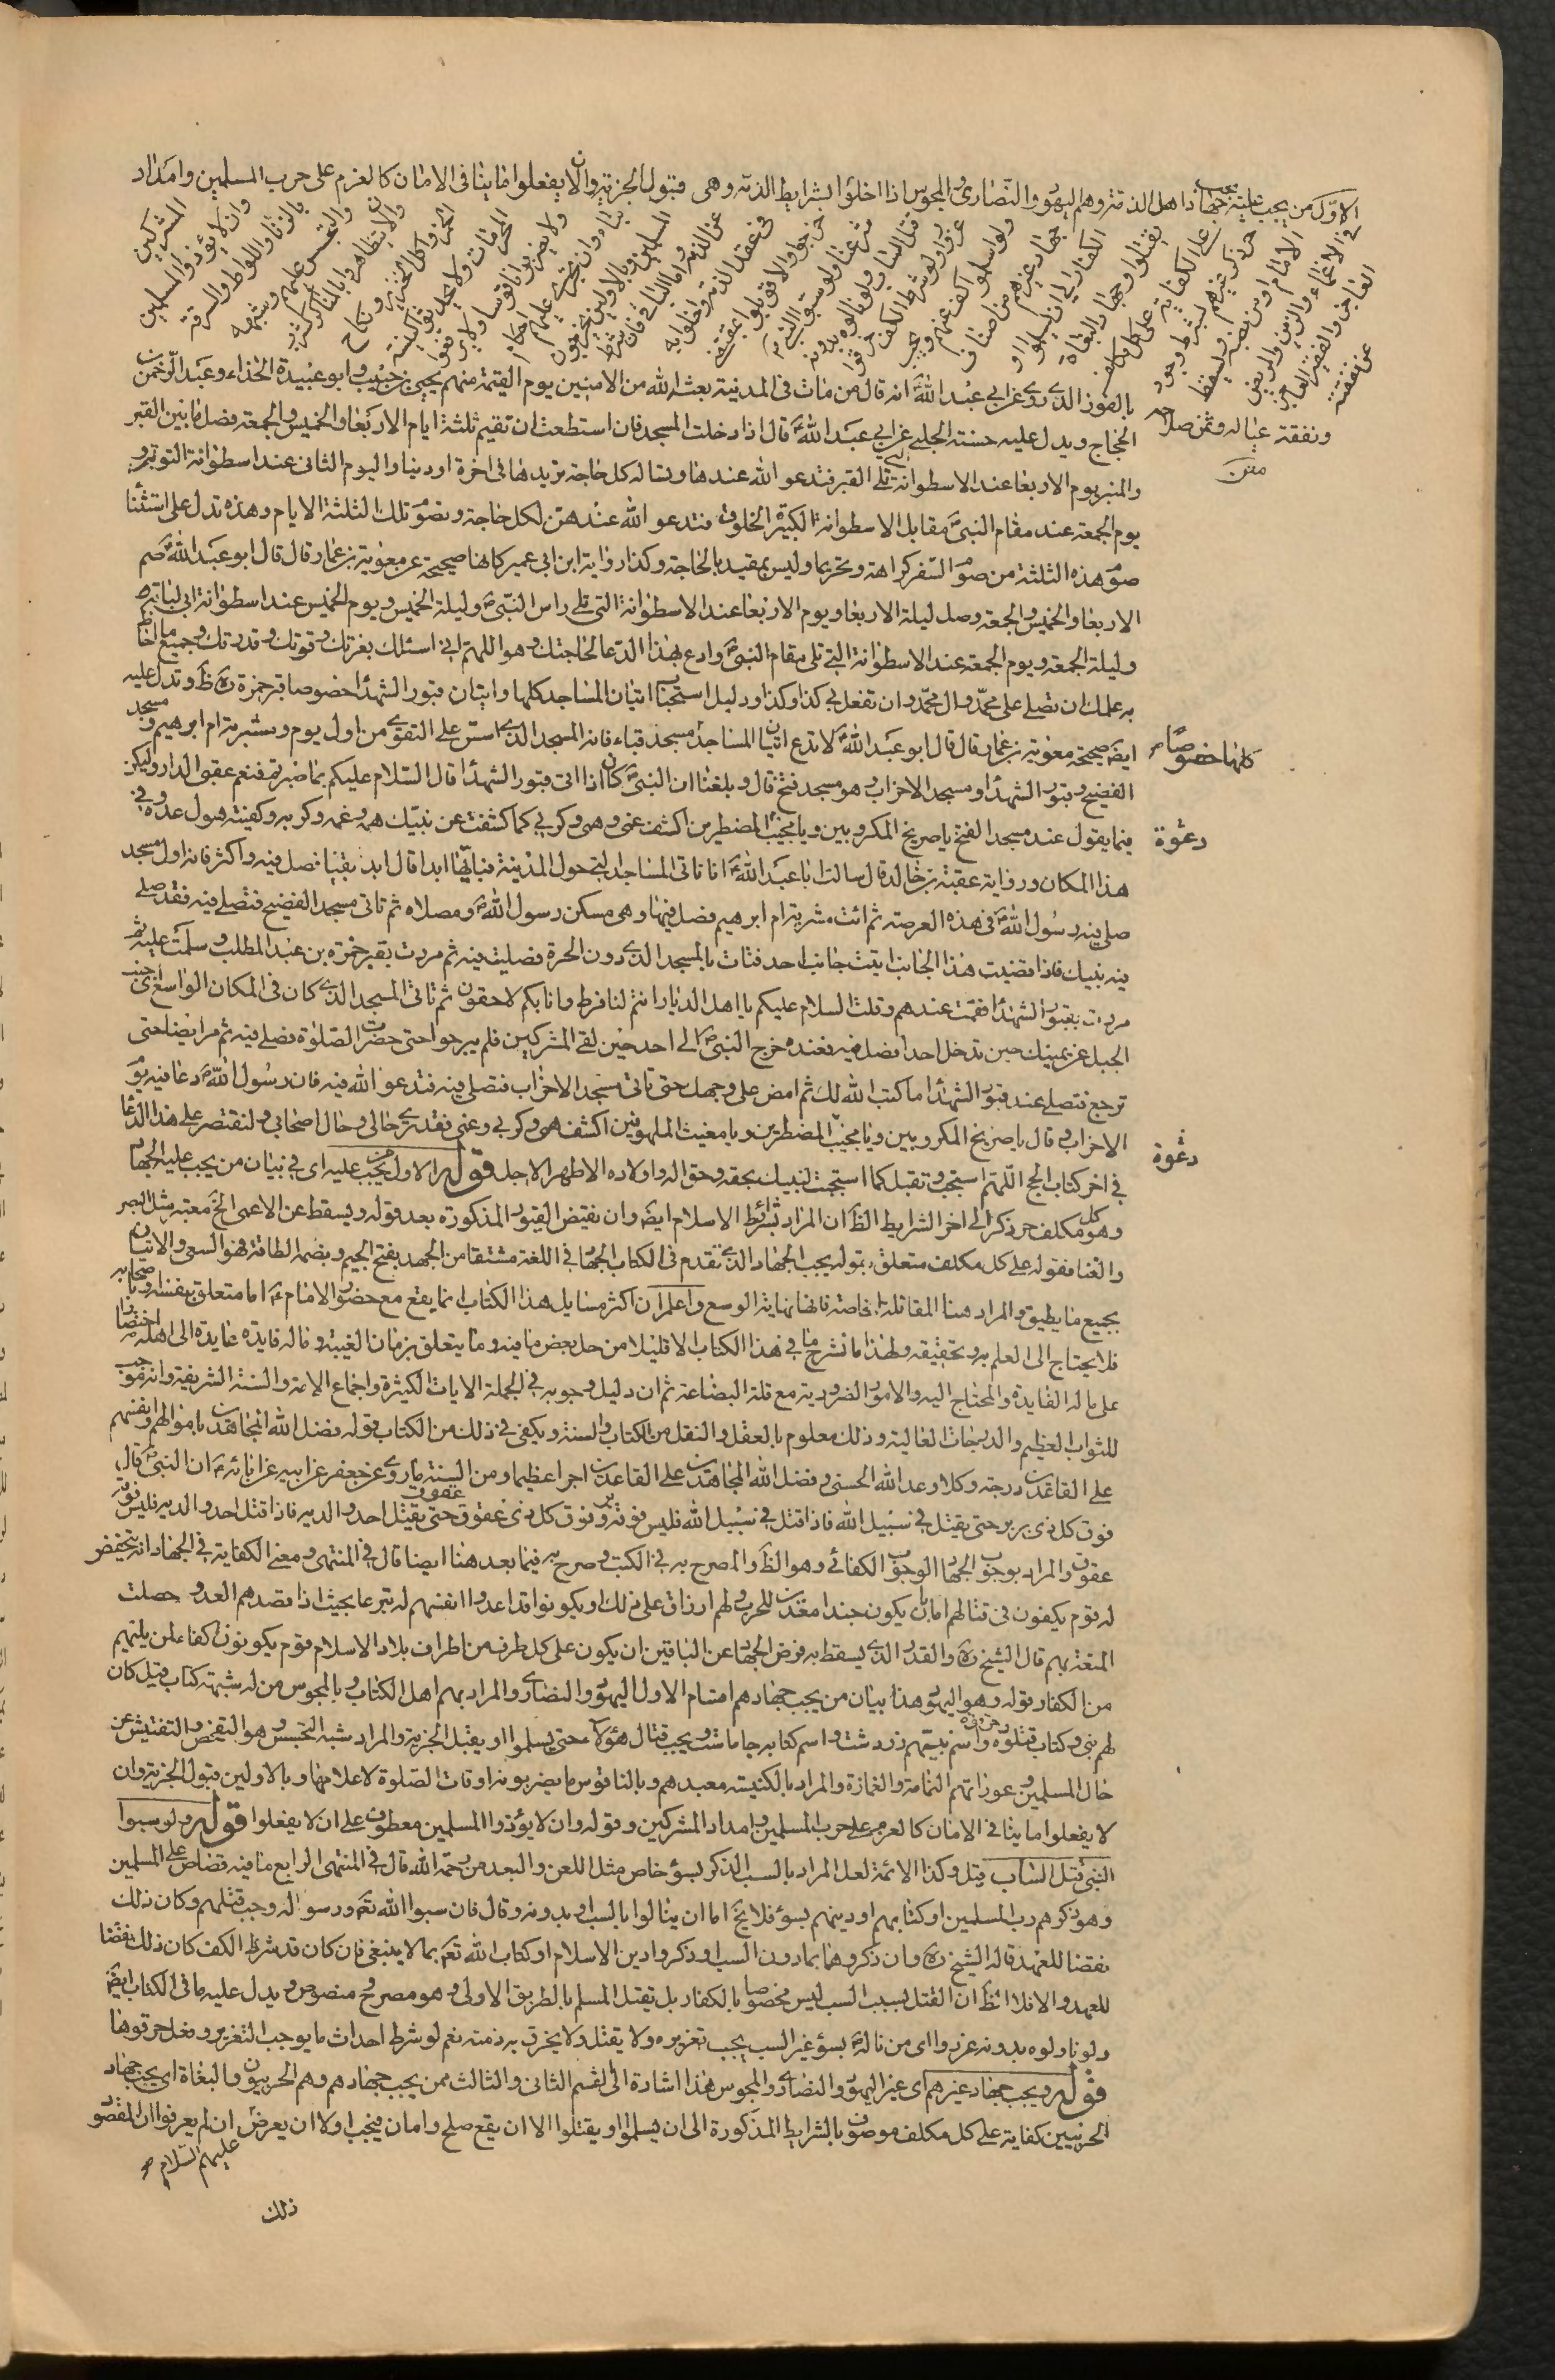 الاول من يجب عليه جهاد اهل الذمة وهم اليهود والنصارى والمجوس اذا اخلوا بشرايط الذمة وهي قبول الجزية وان لا يفعلوا ما ينافى الامان كالعزم على حرب المسلمين وامداد
المشركين
وان لا يؤذوا المسلمين
بالزنا واللواط والسرقة
والتجسس عليهم وشبهه
والا يتظاهروا بالمناكر كشرب
الخمر واكل الخنزير ونكاح
المحرمات ولا يحدثوا كنيسة
ولا يضربوا ناقوسا ولا يرفعوا
بناء وان يجرى عليهم احكام
المسلمين وبالاولين يخرجون
عن الذمة واما البواقى فان شرط
فى عقد الذمة واخلوا به
خرجوا والا قوبلوا بمقتضى
شرعنا ولو سبوا النبى ص
قتل الساب ولو نالوه بدونه
عزروا ولو شرط الكف خرقوا
ولو اسلموا كف عنهم ويجب
جهاد غيرهم من اصناف
الكفار الى ان يسلموا او
يقتلوا وجهاد البغاة
على الكفاية على كل مكلف
حر ذكر غيرهم بشرط وجود
الامام او من نصبه ويسقط
العاجز والفقير العاجز
عن نفقته
ونفقة عياله وثمن صلاحه
متن
بالفوز الذى روى عن ابى عبد الله ع انه قال من مات فى المدينة بعثه الله من الامنين يوم القيمة منهم يحيى بن حبيب وابو عبيدة الحذاء وعبد الرحمن بن
الحجاج ويدل عليه حسنة الحلبى عن ابى عبد الله ع قال اذا دخلت المسجد فان استطعت ان تقيم ثلثة ايام الاربعا والخميس والجمعة فصل ما بين القبر
والمنبر يوم الاربعا عند الاسطوانة التى تلى القبر فتدعو الله عندها وتساله كل حاجة تريدها فى اخرة او دنيا واليوم الثانى عند اسطوانة التوبة و
يوم الجمعة عند مقام النبى ص مقابل الاسطوانة الكبيرة الخلوق فتدعو الله عندهن لكل حاجة وتصوم تلك الثلثة الايام وهذه تدل على استثنا
صوم هذه الثلثة من صوم السفر كراهة وتحريما وليس بمقيد بالحاجة وكذا رواية ابن ابى عمير كانها صحيحة عن معوية بن عمار قال قال ابو عبد الله ع صم
الاربعا والخميس والجمعة وصل ليلة الاربعا ويوم الاربعا عند الاسطوانة التى تلى راس النبى ص وليلة الخميس ويوم الخميس عند اسطوانة ابى لبابة
وليلة الجمعة ويوم الجمعة عند الاسطوانة التى تلى مقام النبى ص وادع بهذا الدعا لحاجتك وهو اللهم انى اسئلك بعزتك وقوتك وقدرتك وجميع ما احاط
به علمك ان تصلى على محمد وال محمد وان تفعل بى كذا وكذا ودليل استحباب اتيان المساجد كلها واتيان قبور الشهدا خصوصا قبر حمزة ره ظ وتدل عليه
كلها خصوصا م
ايضا صحيحة معوية بن عمار قال قال ابو عبد الله ع لا تدع اتيان المساجد مسجد قباء فانه المسجد الذى اسس على التقوى من اول يوم ومشربة ام ابرهيم ومسجد
الفضيخ وقبور الشهدا ومسجد الاحزاب وهو مسجد فتح قال وبلغنا ان النبى ص كان اذا اتى قبور الشهدا قال السلام عليكم بما صبرتم فنعم عقبى الدار وليكن
دعوة
فيما يقول عند مسجد الفتح يا صريخ المكروبين ويا مجيب المضطرين اكشف عنى وهمى وكربى كما كشفت عن نبيك همه وغمه وكربه وكفيته هول عدوه فى
هذا المكان ورواية عقبة بن خالد قال سالت ابا عبد الله ع انا ناتى المساجد التى حول المدينة فبايها ابدا قال ابدا بقبا فصل فيه واكثر فانه اول مسجد
صلى فيه رسول الله ص فى هذه العرصة ثم ائت مشربة ام ابرهيم فصل فيها وهى مسكن رسول الله ص ومصلاه ثم تاتى مسجد الفضيخ فتصلى فيه فقد صلى
فيه نبيك فاذا قضيت هذا الجانب اتيت جانب احد فتات بالمسجد الذى دون الحرة فصليت فيه ثم مررت بقبر حمزة بن عبد المطلب وسلمت عليه ثم
مررت بقبور الشهدا فقمت عندهم وقلت السلام عليكم يا اهل الديار انتم لنا فرط وانا بكم لاحقون ثم تاتى المسجد الذى كان فى المكان الواسع الى جنب
الجبل عن يمينك حين تدخل احدا فصل فيه فعنده خرج النبى ص الى احد حين لقى المشركين فلم يبرحوا حتى حضرت الصلوة فصلى فيه ثم مر ايضا حتى
ترجع فتصلى عند قبور الشهدا ما كتب الله لك ثم امض على وجهك حتى تاتى مسجد الاحزاب فتصلى فيه فتدعو الله فيه فان رسول الله ص دعا فيه يوم
دعوة
الاحزاب وقال يا صريخ المكروبين ويا مجيب المضطرين ويا مغيث الملهوفين اكشف همى وكربى وغمى فقد ترى حالى وحال اصحابى ولنقتصر على هذا الدعا
فى اخر كتاب الحج اللهم استجب وتقبل كما استجبت لنبيك بحقه وحق اله واولاده الاطهر الاجلة قوله الاول من يجب عليه اى فى بيان من يجب عليه الجهاد
وهو كل مكلف حر ذكر الى اخر الشرايط الظ ان المراد بشرائط الاسلام ايضا وان نقيض القيود المذكورة بعد قوله ويسقط عن الاعمى الخ معتبر مثل البصر
والغنا فقوله على كل مكلف متعلق بقوله يجب الجهاد الذى تقدم فى الكتاب الجهاد فى اللغة مشتقا من الجهد بفتح الجيم وبضمه الطاقة فهو السعى والاتيان
بجميع ما يطيق والمراد هنا المقاتلة خاصة فانها نهاية الوسع واعلم ان اكثر مسايل هذا الكتاب انما يقع مع حضور الامام ع اما متعلق بنفسه او باصحابه
فلا يحتاج الى العلم به وتحقيقه ولهذا ما نشرح ما فى هذا الكتاب الا قليلا من حل بعض ما فيه وما يتعلق بزمان الغيبة وفائدة عايدة الى اهله اختصارا
على ما له الفايدة والمحتاج اليه والامور الضرورية مع قلة البضاعة ثم ان دليل وجوبه فى الجملة الايات الكثيرة واجماع الامة والسنة الشريفة وانه موجب
للثواب العظيم والدرجات العالية وذلك معلوم بالعقل والنقل من الكتاب والسنة ويكفى فى ذلك من الكتاب قوله فضل الله المجاهدين باموالهم وانفسهم
على القاعدين درجة وكلا وعد الله الحسنى وفضل الله المجاهدين على القاعدين اجرا عظيما ومن السنة ما روى عن جعفر عن ابيه عن ابائه ع ان النبى ص قال
فوق كل ذى بر بر حتى يقتل فى سبيل الله فاذا قتل فى سبيل الله فليس فوقه بر وفوق كل ذى عقوق عقوق حتى يقتل احد والديه فاذا قتل احد والديه فليس فوقه
عقوق والمراد بوجوب الجهاد الوجوب الكفائى وهو الظ والمصرح به فى الكتب وصرح به فيما بعد هنا ايضا قال فى المنتهى ومعنى الكفاية فى الجهاد ان ينهض
له قوم يكفون فى قتالهم اما بان يكون جندا معدين للحرب ولهم ارزاق على ذلك او يكونوا قد اعدوا انفسهم له تبرعا بحيث اذا قصدهم العدو حصلت
المنعة بهم قال الشيخ ره والقدر الذى يسقط به فرض الجهاد عن الباقين ان يكون على كل طرف من اطراف بلاد الاسلام قوم يكونون اكفاء لمن يليهم
من الكفار قوله وهو اليهود هذا بيان من يجب جهادهم اقسام الاول اليهود والنصارى والمراد بهم اهل الكتاب وبالمجوس من له شبهة كتاب قيل كان
لهم نبى وكتاب قتلوه وحرقوه واسم نبيهم زردشت واسم كتابه جاماشت ويجب قتال هؤلاء حتى يسلموا او يقبل الجزية والمراد بشبه التجسس وهو التفحص والتفتيش عن
حال المسلمين وعوراتهم النمامة والغمازة والمراد بالكنيسة معبدهم وبالناقوس ما يضربونه اوقات الصلوة لاعلامها وبالاولين قبول الجزية وان
لا يفعلوا ما ينافى الامان كالعزم على حرب المسلمين وامداد المشركين وقوله وان لا يؤذوا المسلمين معطوف على ان لا يفعلوا قوله ولو سبوا
النبى قتل الساب قيل وكذا الائمة لعل المراد بالسب الذكر بسوء خاص مثل اللعن والبعد من رحمة الله قال فى المنتهى الرابع ما فيه قصاص على المسلمين
وهو ذكرهم رب المسلمين او كتابهم او دينهم بسوء فلا يخ اما ان ينالوا بالسب او بدونه وقال فان سبوا الله تع ورسوله وجب قتلهم وكان ذلك
نقضا للعهد قاله الشيخ ره وان ذكروهما بما دون السب او ذكروا دين الاسلام او كتاب الله تع بما لا ينبغى فان كان قد شرط الكف كان ذلك نقضا
للعهد والا فلا الظ ان القتل بسبب السب ليس مخصوصا بالكفار بل يقتل المسلم بالطريق الاولى وهو مصرح منصوص ويدل عليه ما فى الكتاب ايضا
ولو نالوه بدونه عزروا اى من ناله بسوء غير السب يجب تعزيره ولا يقتل ولا يخرق به ذمته نعم لو شرط احداث ما يوجب التعزير وفعل خرقوها
قوله ويجب جهاد غيرهم اى غير اليهود والنصارى والمجوس هذا اشارة الى القسم الثانى والثالث ممن يجب جهادهم وهم الحربيون والبغاة اى يجب جهاد
الحربيين كفاية على كل مكلف موصوف بالشرايط المذكورة الى ان يسلموا او يقتلوا الا ان يقع صلح وامان فيجب اولا ان يعرض ان لم يعرفوا ان المقصود
عليهم السلام
ذلك